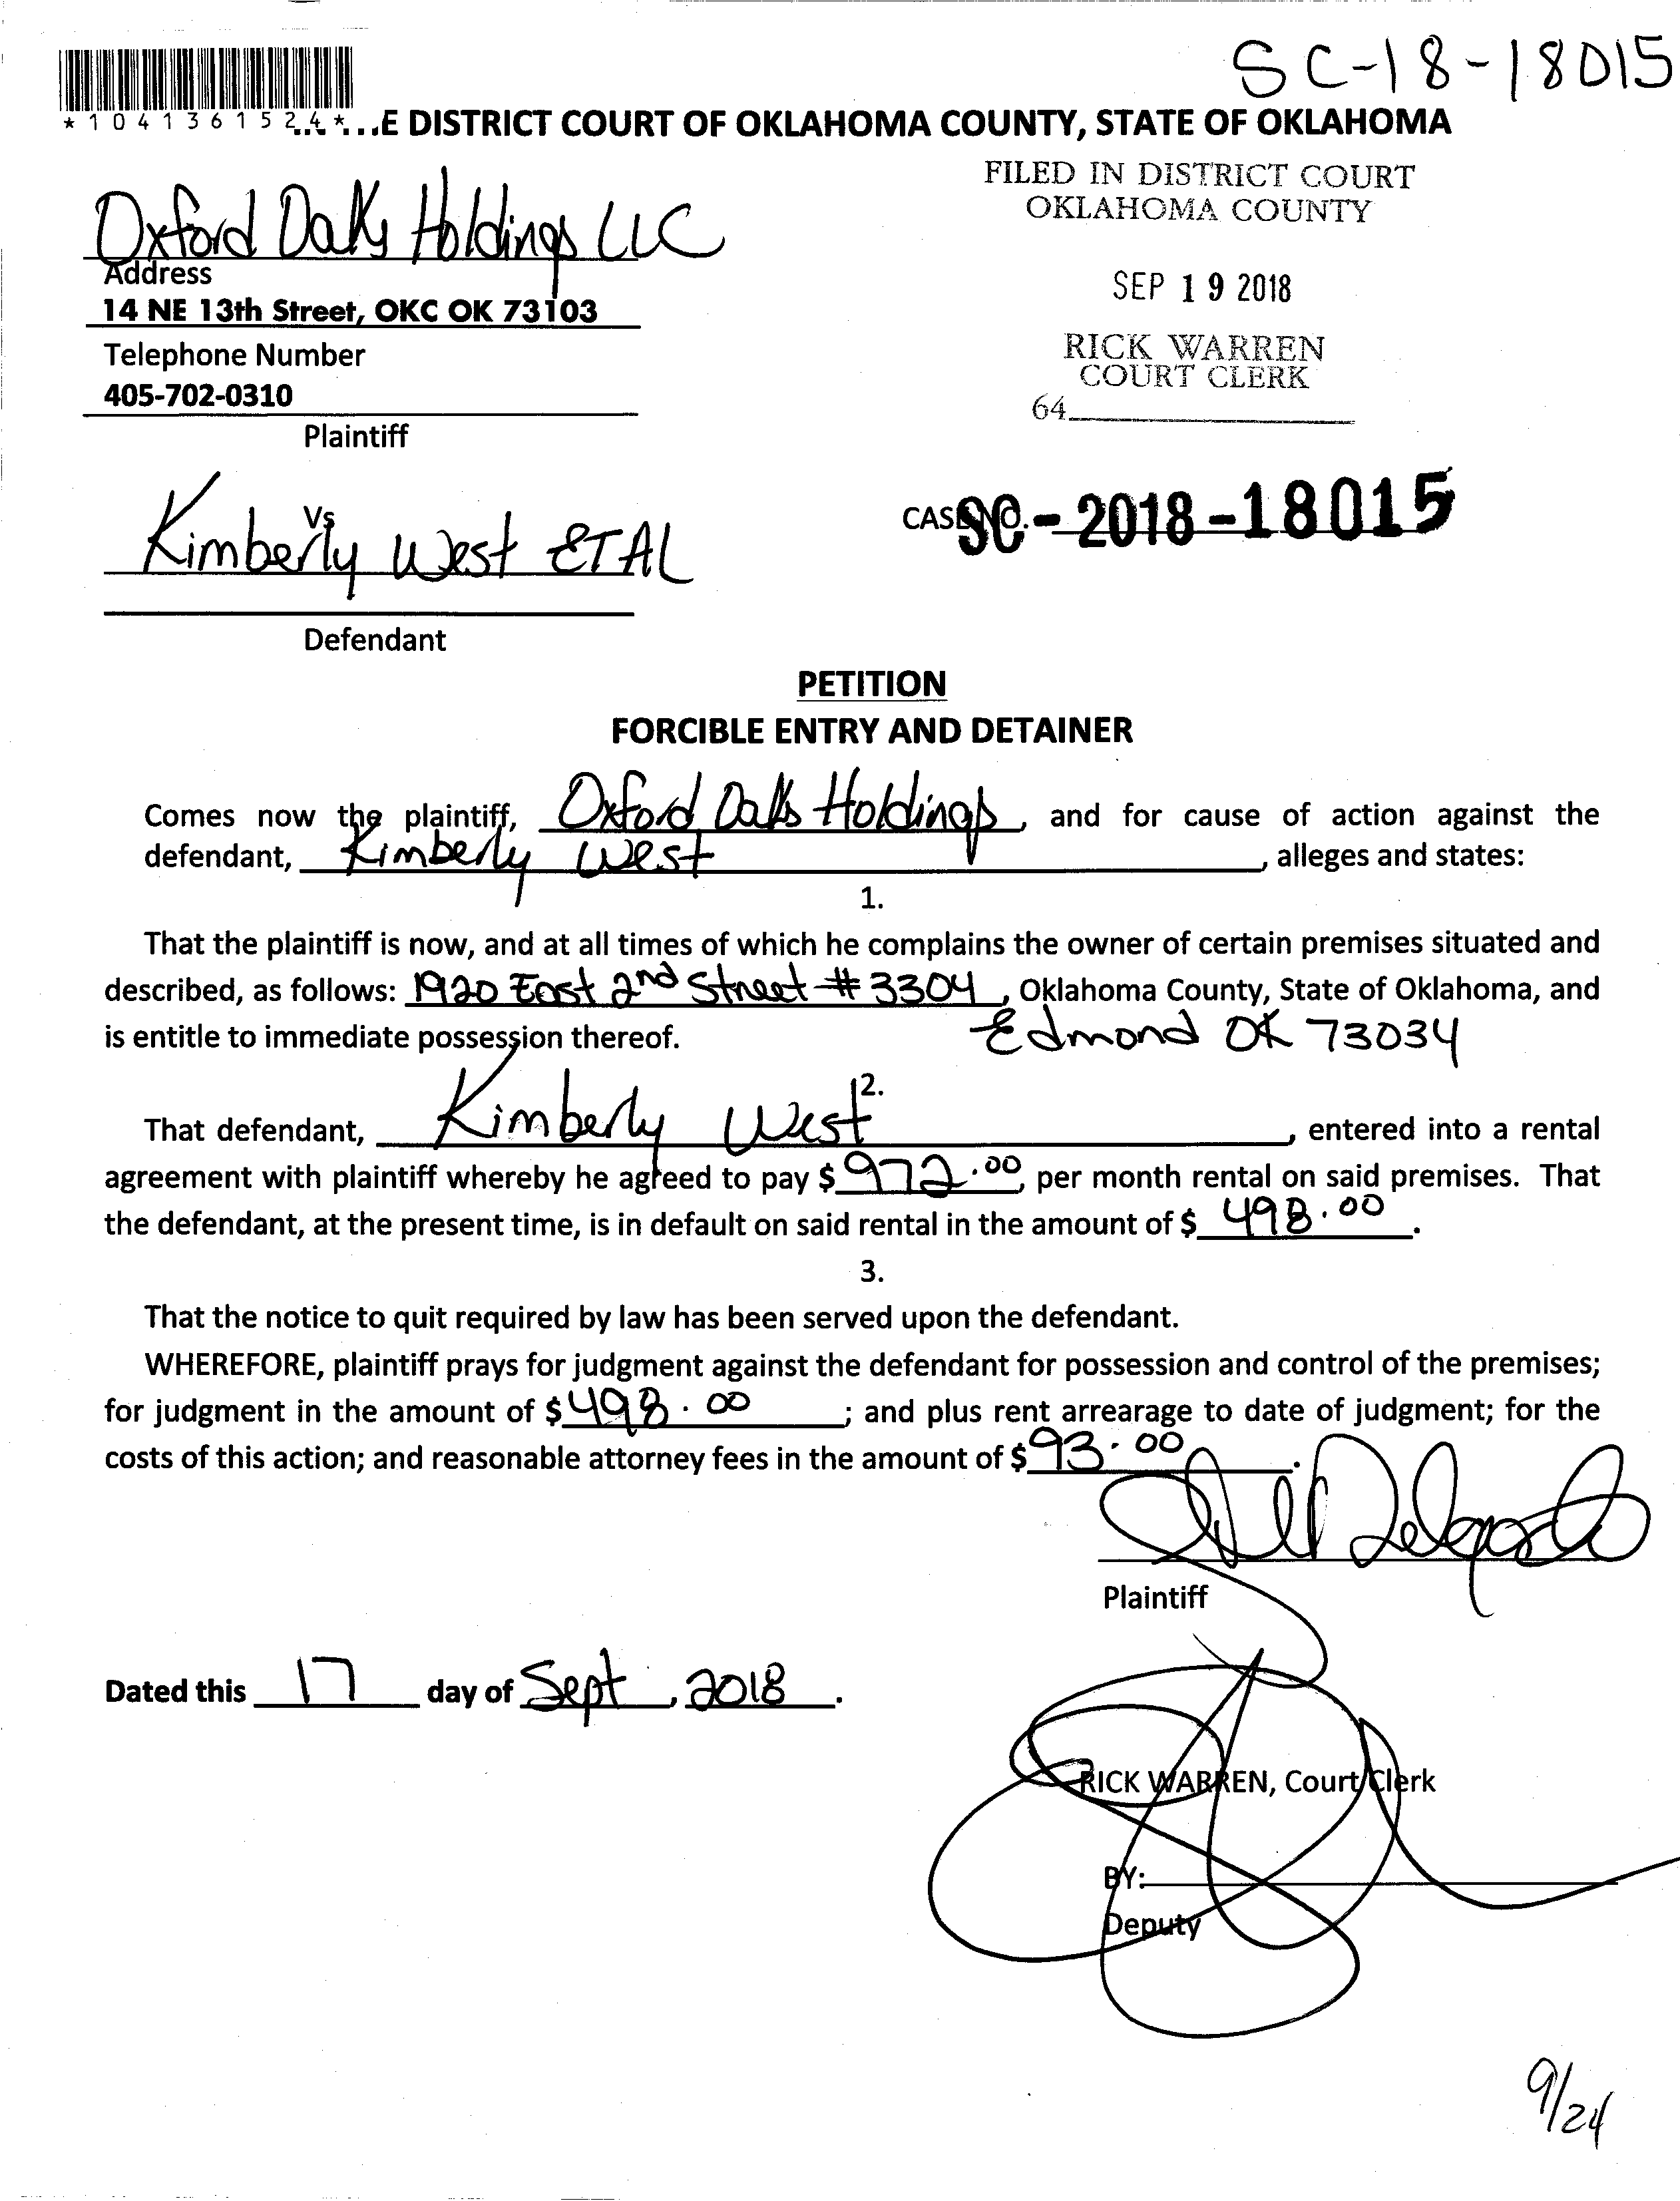 SC-18-18015
*1041361524*...E DISTRICT COURT OF OKLAHOMA COUNTY, STATE OF OKLAHOMA
FILED IN DISTRICT COURT
OKLAHOMA COUNTY
SEP 19 2018
RICK WARREN
COURT CLERK
64
Oxford Oaks Holdings LLC
Address
14 NE 13th Street, OKC OK 73103
Telephone Number
405-702-0310
Plaintiff
Vs
Kimberly West ETAL
Defendant
CASE NO. SC-2018-18015
PETITION
FORCIBLE ENTRY AND DETAINER
Comes now the plaintiff, Oxford Oaks Holdings, and for cause of action against the
defendant, Kimberly West, alleges and states:
1.
That the plaintiff is now, and at all times of which he complains the owner of certain premises situated and
described, as follows: 1920 East 2nd Street # 3304, Oklahoma County, State of Oklahoma, and
is entitle to immediate possession thereof. Edmond OK 73034
2.
That defendant, Kimberly West, entered into a rental
agreement with plaintiff whereby he agreed to pay $ 972.00, per month rental on said premises. That
the defendant, at the present time, is in default on said rental in the amount of $ 498.00.
3.
That the notice to quit required by law has been served upon the defendant.
WHEREFORE, plaintiff prays for judgment against the defendant for possession and control of the premises;
for judgment in the amount of $ 498.00; and plus rent arrearage to date of judgment; for the
costs of this action; and reasonable attorney fees in the amount of $ 93.00.
Delgado
Plaintiff
Dated this 17 day of Sept, 2018.
RICK WARREN, Court Clerk
BY:
Deputy
9/24